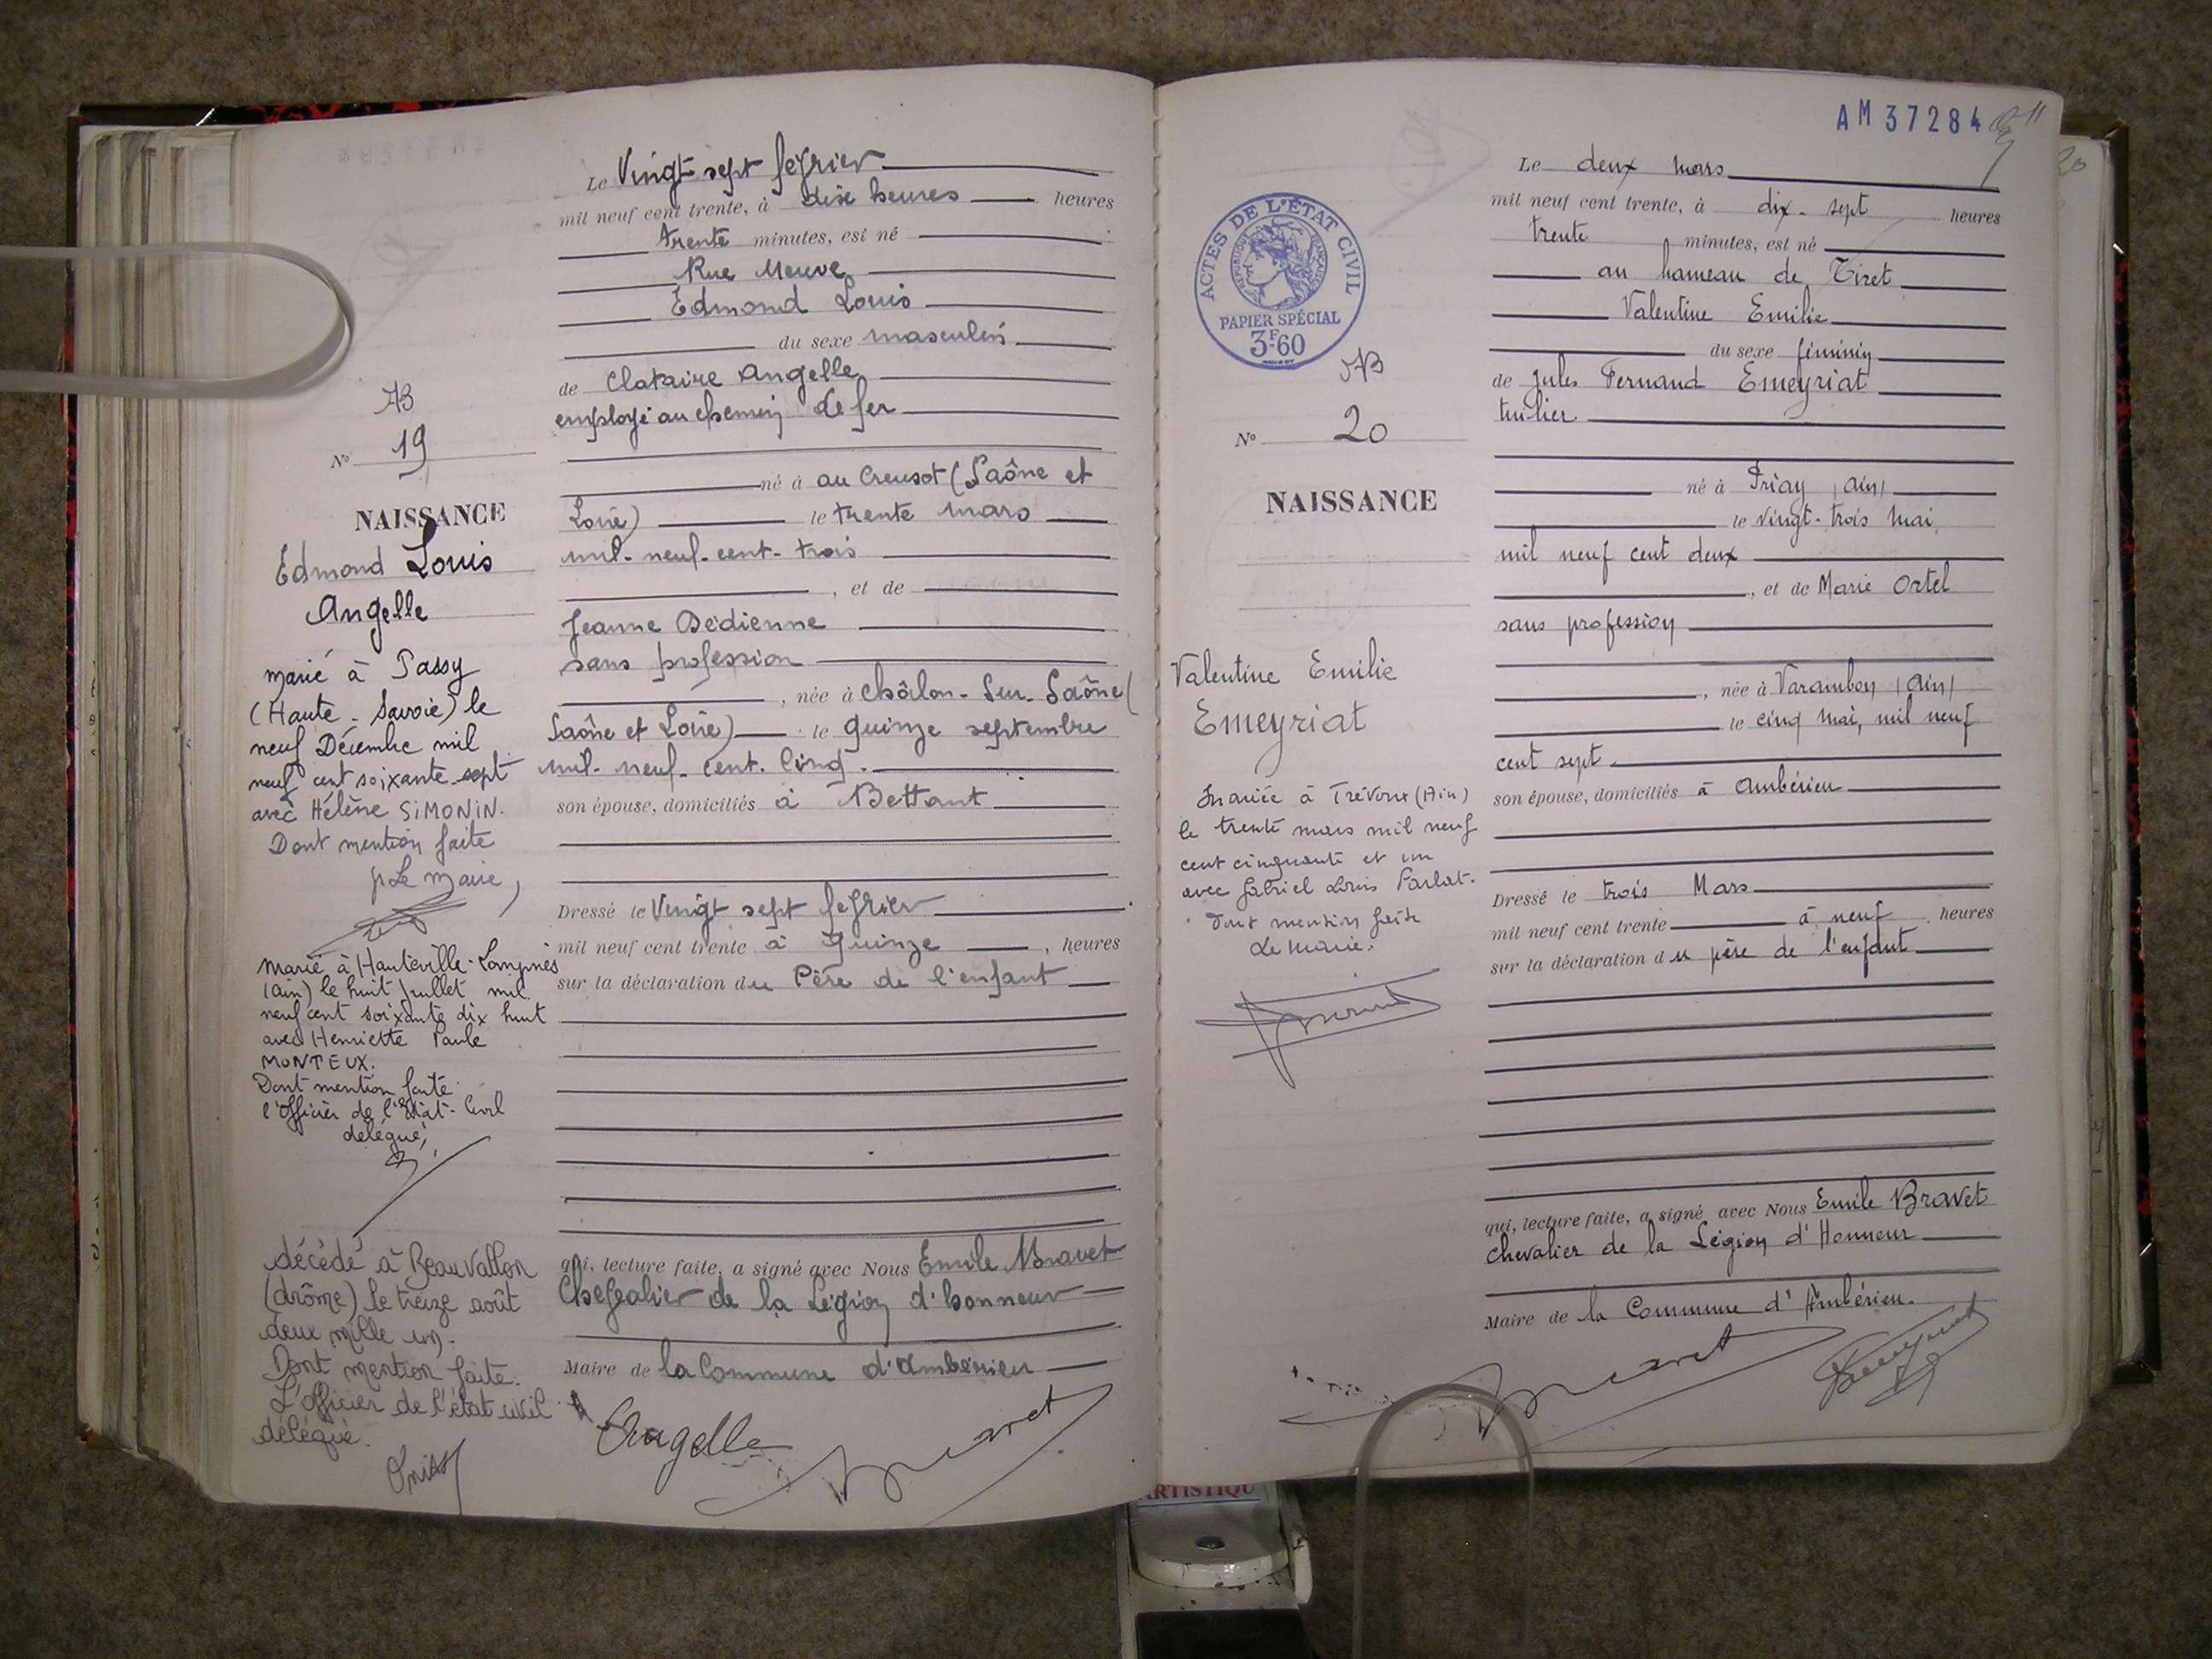 AB
N° 19
NAISSANCE
Edmond Louis
Angelle
marié à Passy
(Haute-Savoie) le
neuf Décembre mil
neuf cent soixante sept
avec Hélène SIMONIN.
Dont mention faite
p. Le Maire,
Marié à Hauteville-Lompnes
(Ain) le huit juillet mil
neuf cent soixante dix huit
avec Henriette Paule
MONTEUX.
Dont mention faite
l'Officier de l'Etat-Civil
délégué,
décédé à Beauvallon
(drôme) le treize août
deux mille un.
Dont mention faite.
L'officier de l'état civil
délégué.
Le Vingt sept février
mil neuf cent trente, à dise heures heures
trente minutes, est né
Rue Neuve
Edmond Louis
du sexe masculin
de Clotaire Angelle
employé au chemin de fer
né à au Creusot (Saône et
Loire) le trente mars
mil-neuf-cent-trois
, et de
Jeanne Dédienne
sans profession
, née à Châlon-Sur-Saône (
Saône et Loire) le quinze septembre
mil-neuf-cent. Cinq.
son épouse, domiciliés à Bettant
Dressé le Vingt sept février
mil neuf cent trente à quinze , heures
sur la déclaration du Père de l'enfant
qui, lecture faite, a signé avec Nous Emile Bravet
Chevalier de la Légion d'honneur
Maire de la Commune d'Ambérieu
Angelle Bravet
AM 37284
ACTES DE L'ÉTAT CIVIL
RÉPUBLIQUE FRANÇAISE
PAPIER SPÉCIAL
3F.60
AB
N° 20
NAISSANCE
Valentine Emilie
Emeyriat
Mariée à Trévoux (Ain)
le trente mars mil neuf
cent cinquante et un
avec Gabriel Louis Parlat.
Dont mention faite
Le Maire.
Le deux mars
mil neuf cent trente, à dix-sept heures
trente minutes, est né
au hameau de Tiret
Valentine Emilie
du sexe féminin
de Jules Fernand Emeyriat
tuilier
né à Priay (Ain)
le vingt-trois mai
mil neuf cent deux
, et de Marie Ortel
sans profession
, née à Varambon (Ain)
le cinq mai, mil neuf
cent sept
son épouse, domiciliés à Ambérieu
Dressé le trois Mars
mil neuf cent trente à neuf heures
sur la déclaration du père de l'enfant
qui, lecture faite, a signé avec Nous Emile Bravet
chevalier de la Légion d'Honneur
Maire de la Commune d'Ambérieu.
Bravet Emeyriat
ARTISTIQU